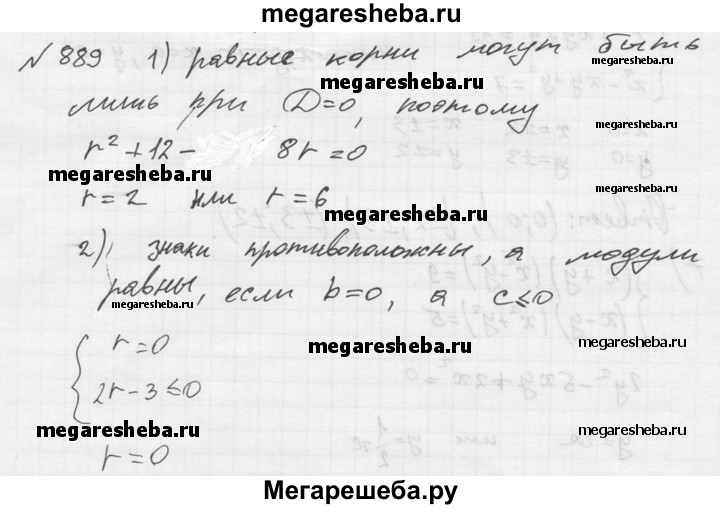 megaresheba.ru
№ 889 1) равные корни могут быть
megaresheba.ru
megaresheba.ru
лишь при D=0, поэтому
megaresheba.ru
r² + 12 - 8r = 0
megaresheba.ru
megaresheba.ru
r = 2 или r = 6
megaresheba.ru
2) знаки противоположны, а модули
megaresheba.ru
равны, если b=0, а c≤0
megaresheba.ru
r = 0
megaresheba.ru
megaresheba.ru
2r - 3 ≤ 0
megaresheba.ru
megaresheba.ru
r = 0
Мегарешеба.ру